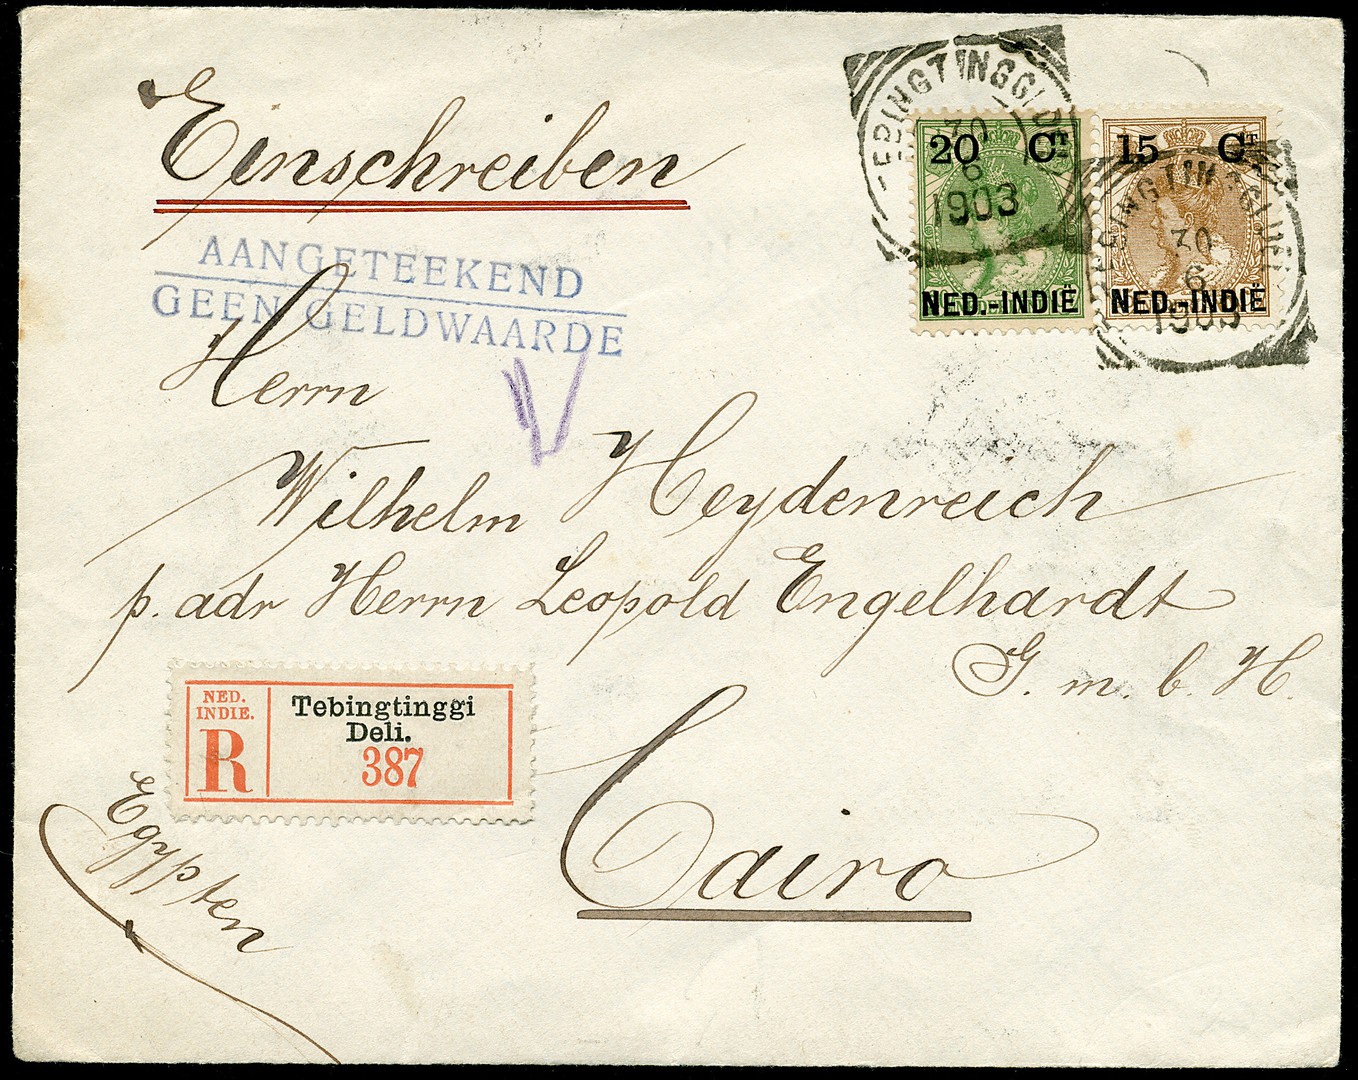 Einschreiben
AANGETEEKEND
GEEN GELDWAARDE
EBINGTINGGI DE
30
6
1903
20 CT
NED.-INDIË
15 CT
NED.-INDIË
EBINGTINGGI DELI
30
6
1903
Herrn
Wilhelm Heydenreich
p. adr Herrn Leopold Engelhardt
G. m. b. H.
Cairo
NED.
INDIE.
R
Tebingtinggi
Deli.
387
Egypten